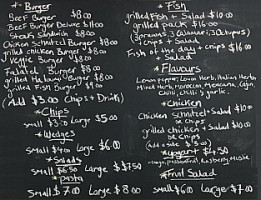 * Burger
Beef Burger $8.00
Beef Burger Deluxe $11.00
Steak Sandwich $8.00
Chicken Schnitzel Burger $8.00
grilled chicken Burger $8.00
Veggie Burger $8.00
Falafel Burger $8.00
grilled Haloumi Burger $8.00
grilled Fish Burger $9.00
(Add $3.00 Chips + Drink)
* Chips
small $3.50 Large $5.00
* Wedges
small $4.00 Large $6.00
* Salads
small $6.50 Large $7.50
* Pasta
small $7.00 Large $8.00
* Fish
grilled Fish + Salad $10.00
grilled pack $16.00
+ Salad
Fish of the day + chips $16.00
+ Salad
* Flavours
Lemon Pepper, Lemon Herb, Italian Herbs
Mixed Herb, Moroccan, Mexican, Cajun
Chilli, chilli & garlic.
* Chicken
Chicken Schnitzel + Salad $10.00
or chips
grilled chicken + Salad $10.00
or chips
* yogurt $4.50
Mango, passionfruit, Raspberry
* Fruit Salad
small $6.00 Large $7.00